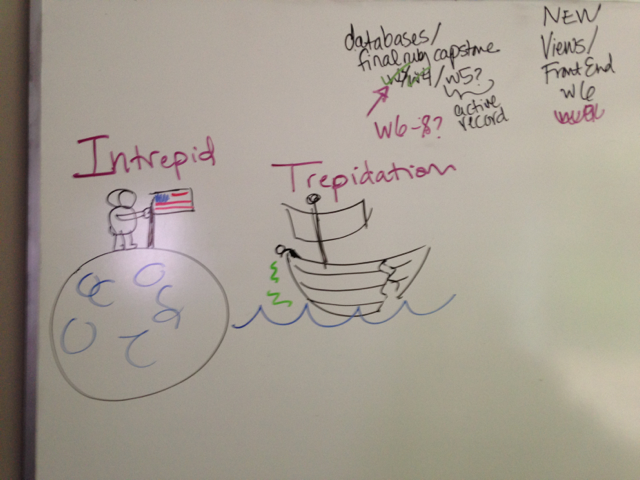 databases/
final ruby capstone
w4/w5?
active
record
W6-8?
NEW
Views/
Front End
W6
Intrepid
Trepidation